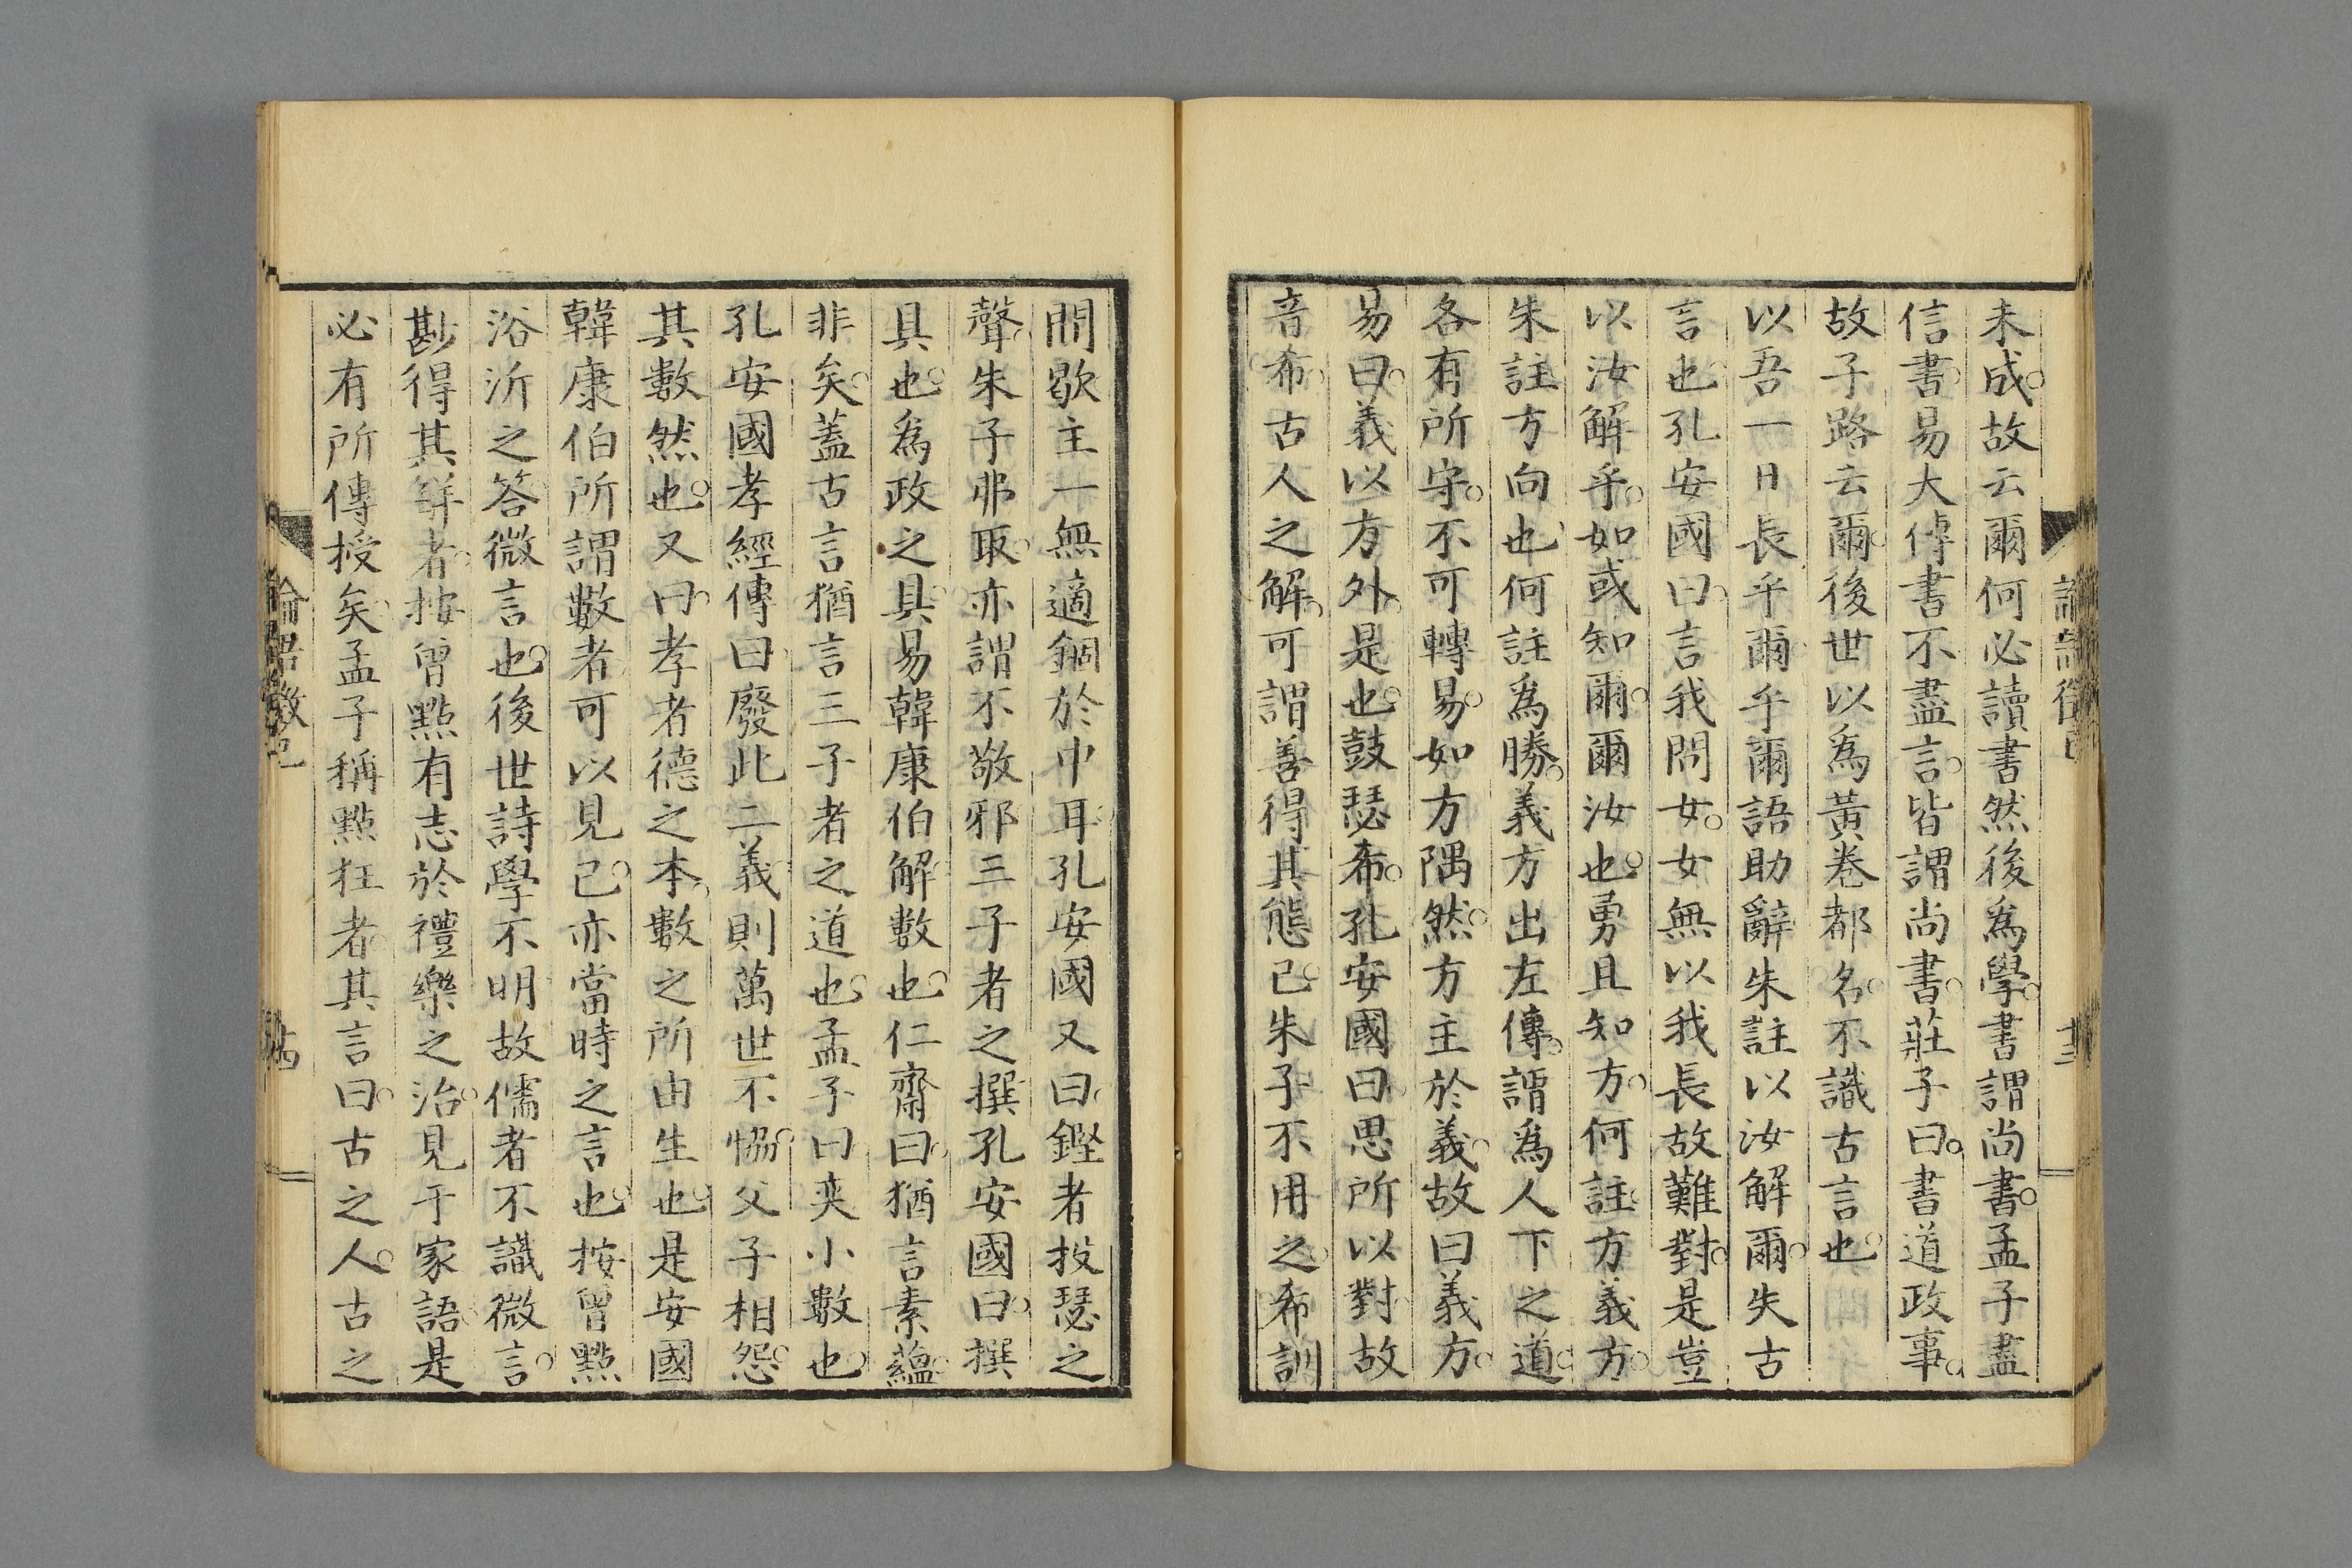 未成故云爾何必讀書然後爲學書謂尚書孟子盡
信書易大傳書不盡言皆謂尚書莊子曰書道政事
故子路云爾後世以爲黃卷都名不識古言也
以吾一日長乎爾乎爾語助辭朱註以汝解爾失古
言也孔安國曰言我問女女無以我長故難對是豈
以汝解乎如或知爾爾汝也勇且知方何註方義方
朱註方向也何註爲勝義方出左傳謂爲人下之道
各有所守不可轉易如方隅然方主於義故曰義方
易曰義以方外是也鼓瑟希孔安國曰思所以對故
音希古人之解可謂善得其態已朱子不用之希訓
間歇主一無適錮於中耳孔安國又曰鏗者投瑟之
聲朱子弗取亦謂不敬邪三子者之撰孔安國曰撰
具也爲政之具易韓康伯解數也仁齋曰猶言素蘊
非矣蓋古言猶言三子者之道也孟子曰奕小數也
孔安國孝經傳曰廢此二義則萬世不恊父子相怨
其數然也又曰孝者德之本數之所由生也是安國
韓康伯所謂數者可以見已亦當時之言也按曾點
浴沂之答微言也後世詩學不明故儒者不識微言
尠得其觧者按曾點有志於禮樂之治見于家語是
必有所傳授矣孟子稱點狂者其言曰古之人古之
論語徵己